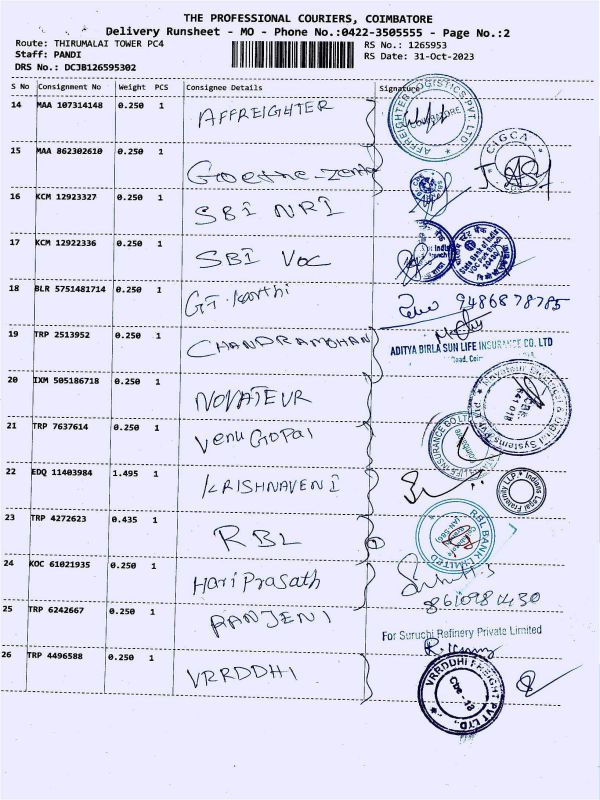 THE PROFESSIONAL COURIERS, COIMBATORE
Delivery Runsheet - MO - Phone No.:0422-3505555 - Page No.:2
Route: THIRUMALAI TOWER PC4
RS No.: 1265953
Staff: PANDI
RS Date: 31-Oct-2023
DRS No.: DCJB126595302
S No Consignment No Weight PCS Consignee Details Signature
14 MAA 107314148 0.250 1 AFFREIGHTER
AFFREIGHTER LOGISTICS PVT. LTD.
15 MAA 862302610 0.250 1 Goethe-
CIGCA
16 KCM 12923327 0.250 1 SBI NRI
17 KCM 12922336 0.250 1 SBI VOC
State Bank of India
18 BLR 5751481714 0.250 1 GT. Karthi
9486878785
19 TRP 2513952 0.250 1 CHANDRAMOHAN
ADITYA BIRLA SUN LIFE INSURANCE CO. LTD
20 IXM 505186718 0.250 1 NOVATEUR
Novateur Electrical & Digital Systems Pvt Ltd
CBE
641 018
21 TRP 7637614 0.250 1 Venu Gopal
22 EDQ 11403984 1.495 1 KRISHNAVENI
Indians Legal Fraternity LLP
23 TRP 4272623 0.435 1 RBL
RBL BANK LIMITED
24 KOC 61021935 0.250 1 Hari Prasath
25 TRP 6242667 0.250 1 RANJENI
For Suruchi Refinery Private Limited
26 TRP 4496588 0.250 1 VRRDDHI
VRRDDHI FREIGHT PVT LTD.
CBE - 18